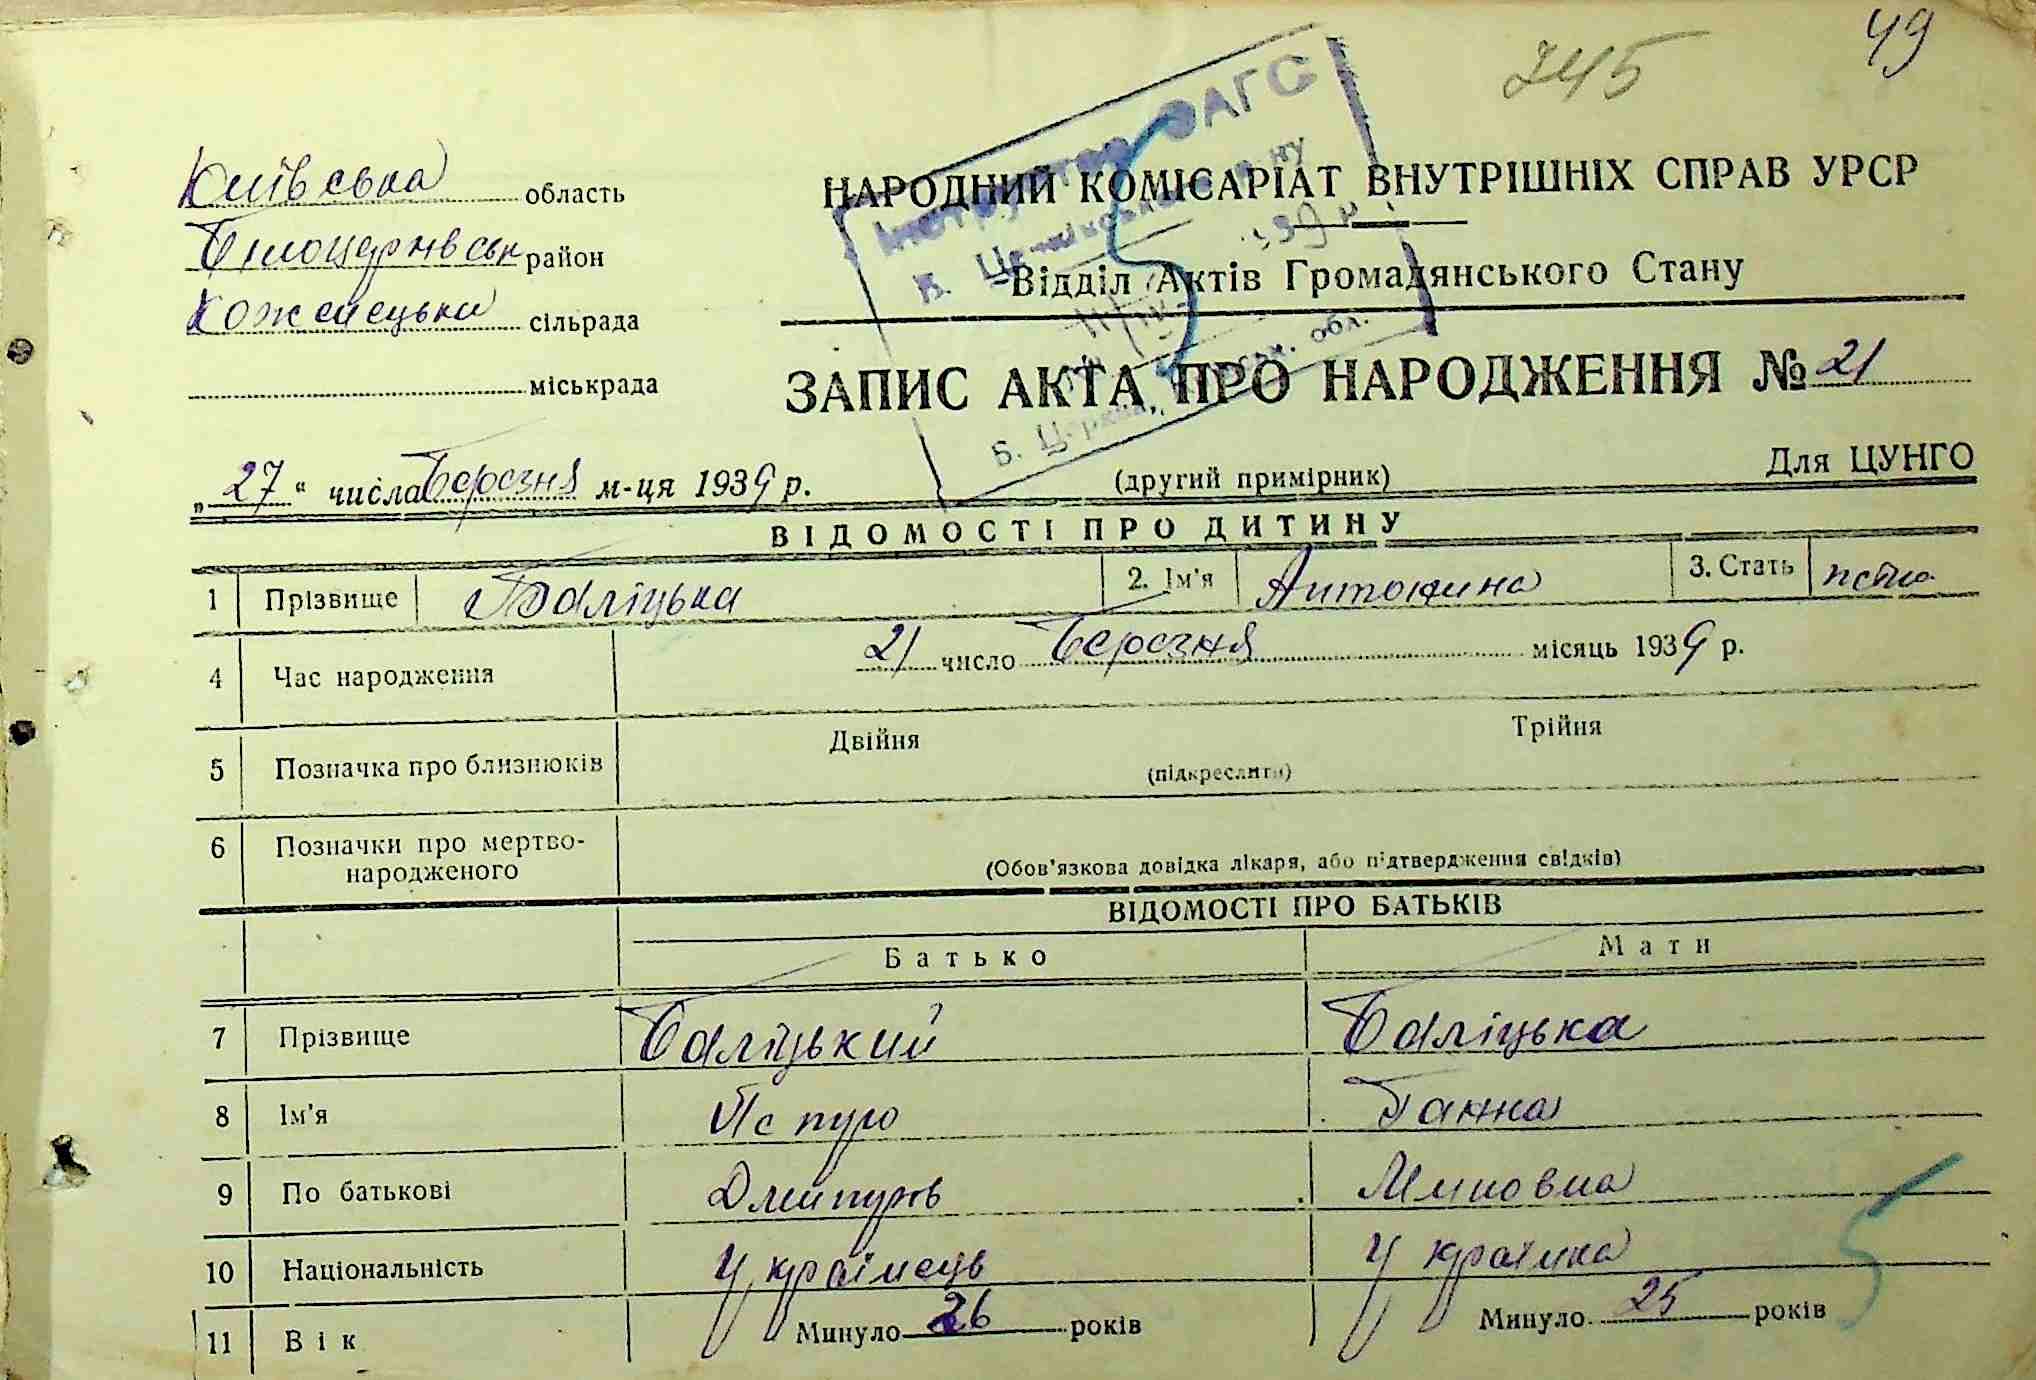 49
745
Київська область
Білоцерківськ район
сільрада
міськрада
НАРОДНИЙ КОМІСАРІАТ ВНУТРІШНІХ СПРАВ УРСР
Відділ Актів Громадянського Стану
ЗАПИС АКТА ПРО НАРОДЖЕННЯ № 21
Інструктор ЗАГС
Б. Церква, обл.
„27“ числа Березня м-ця 1939 р.
(другий примірник)
Для ЦУНГО
ВІДОМОСТІ ПРО ДИТИНУ
1 Прізвище Баліцька 2. Ім'я Антонина 3. Стать
4 Час народження 21 число Березня місяць 1939 р.
5 Позначка про близнюків Двійня Трійня
(підкреслити)
6 Позначки про мертво-
народженого
(Обов'язкова довідка лікаря, або підтвердження свідків)
ВІДОМОСТІ ПРО БАТЬКІВ
Батько Мати
7 Прізвище Баліцький Баліцька
8 Ім'я Петро Ганна
9 По батькові
10 Національність Українець Українка
11 Вік Минуло 26 років Минуло 25 років